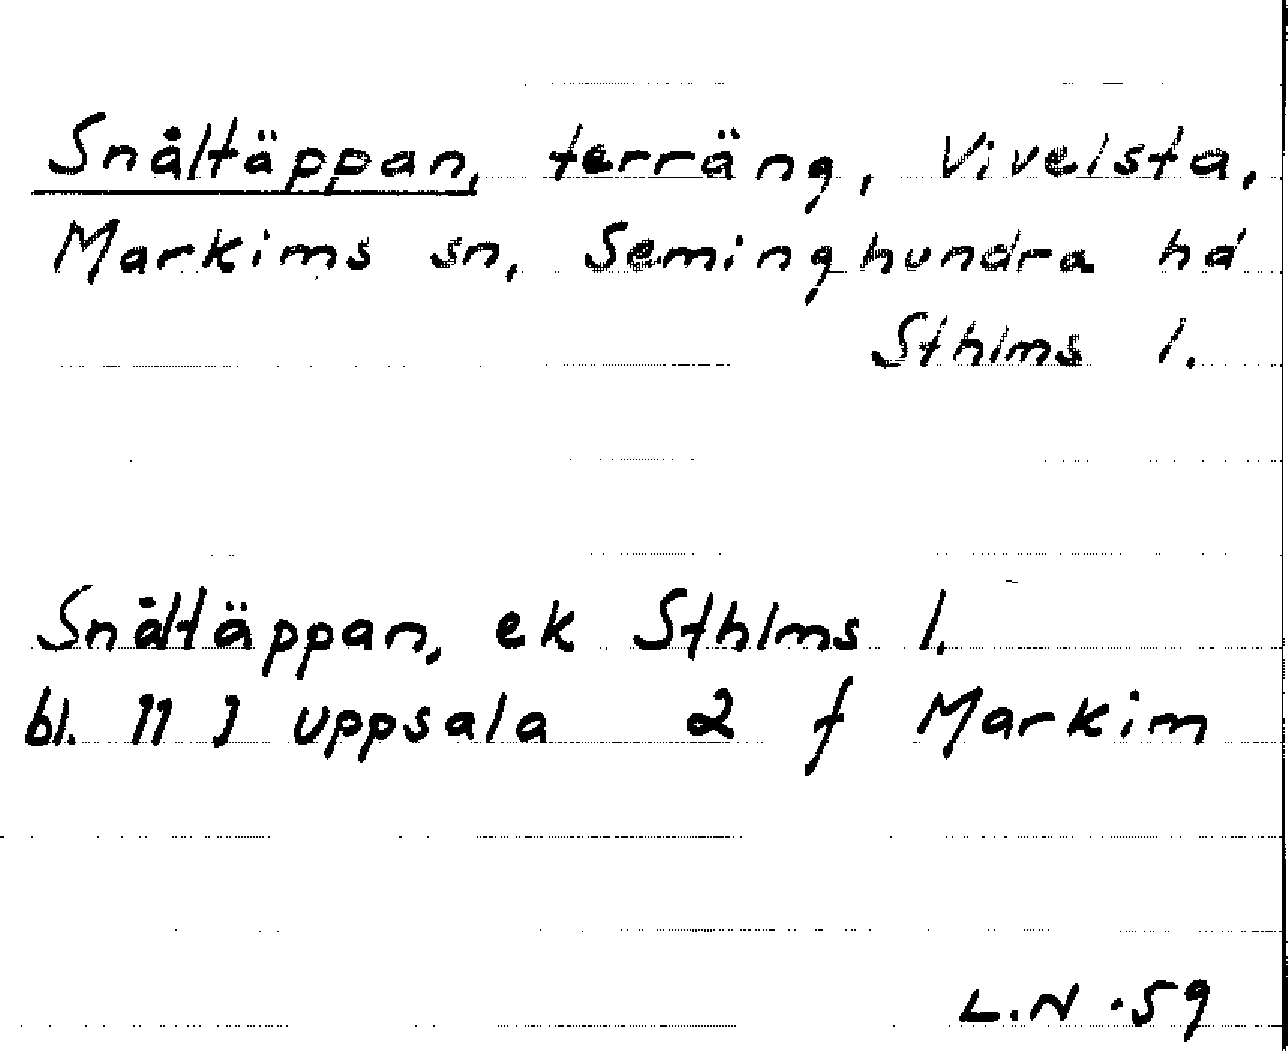 Snåltäppan, terräng, Vivelsta,
Markims sn, Seminghundra hd
Sthlms l.
Snåltäppan, ek Sthlms l.
bl. 11 I Uppsala 2 f Markim
L.N -59